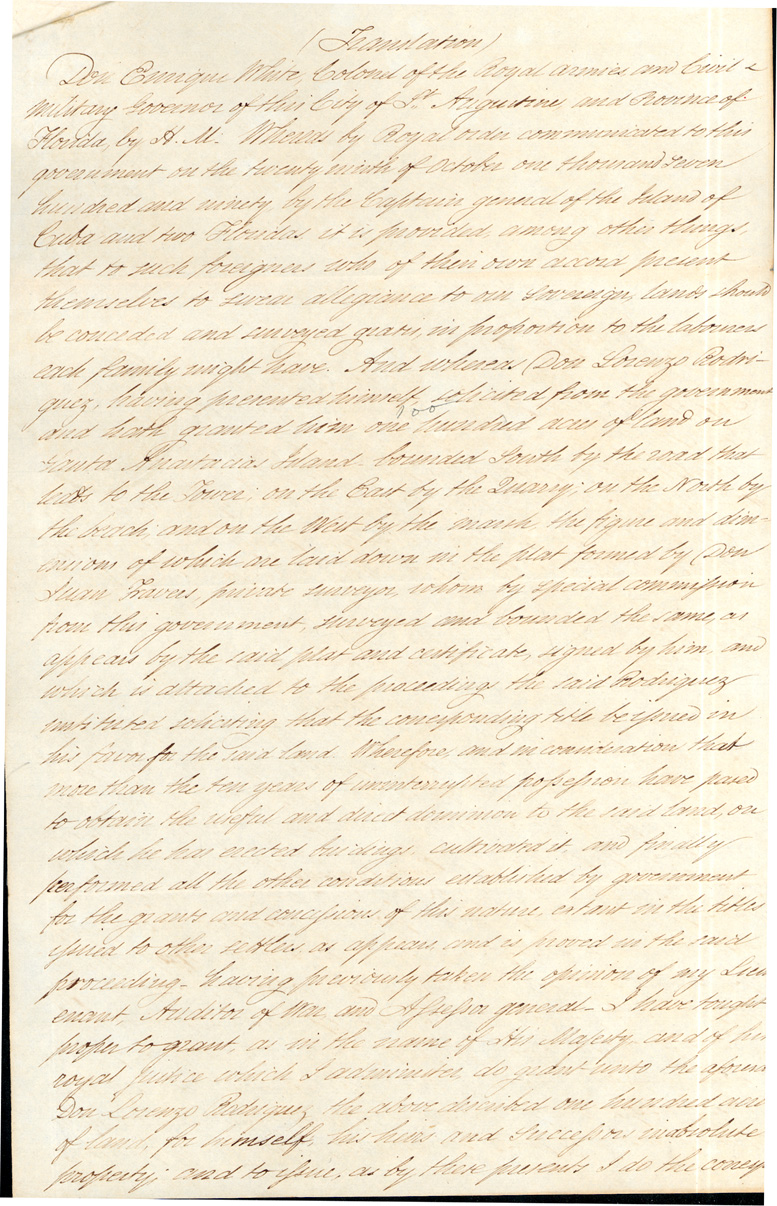 (Translation)
Don Enrique White, Colonel of the Royal armies and Civil &
Military Governor of this City of St. Augustine and Province of
Florida, by H. M. Whereas by Royal order communicated to this
government on the twenty ninth of October one thousand seven
hundred and ninety, by the Captain general of the Island of
Cuba and two Floridas it is provided, among other things,
that to such foreigners who of their own accord present
themselves to swear allegiance to our Sovereign, lands should
be conceded and surveyed gratis, in proportion to the laborers
each family might have. And whereas Don Lorenzo Rodri-
guez, having presented himself, solicited from the government
100
and hath granted him one hundred acres of land on
Santa Anastacias Island - bounded South by the road that
leads to the Tower; on the East by the Quarry; on the North by
the beach; and on the West by the marsh, the figure and dim-
ensions of which are laid down in the plat formed by Don
Juan Travers, private surveyor, whom by special commission
from this government, surveyed and bounded the same, as
appears by the said plat and certificate, signed by him, and
which is attached to the proceedings the said Rodriguez
instituted soliciting that the corresponding title be issued in
his favor for the said land. Wherefore, and in consideration that
more than the ten years of uninterrupted possession have passed
to obtain the useful and direct dominion to the said land, on
which he has erected buidings, cultivated it, and finally
performed all the other conditions established by government
for the grants and concessions of this nature, extant in the titles
issued to other settlers as appears and is proved in the said
proceeding - having previously taken the opinion of my Lieu
enant, Auditor of War, and Assessor general - I have tought
proper to grant, as in the name of His Majesty and of his
royal justice which I administer, do grant unto the aforesa
Don Lorenzo Rodriguez the above described one hundred acre
of land, for himself, his heirs and Successors in absolute
property; and to issue, as by these presents I do the convey